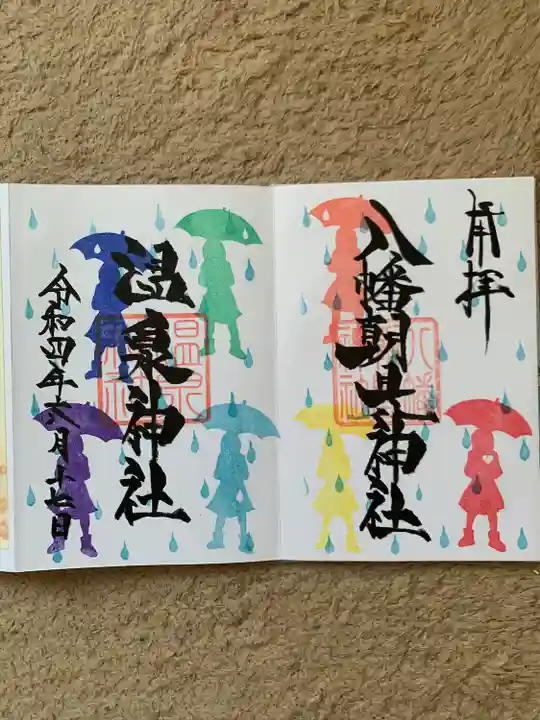 奉拝
八幡朝見神社
温泉神社
令和四年六月十七日